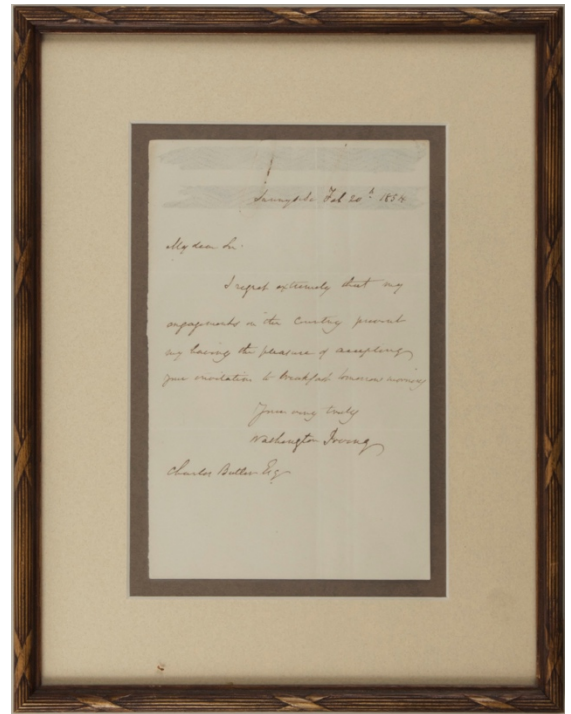 Sunnyside Feb 20th 1854
My dear Sir
I regret extremely that my
engagements in the country prevent
my having the pleasure of accepting
your invitation to breakfast tomorrow morning
Yours very truly
Washington Irving
Charles Butler Esq